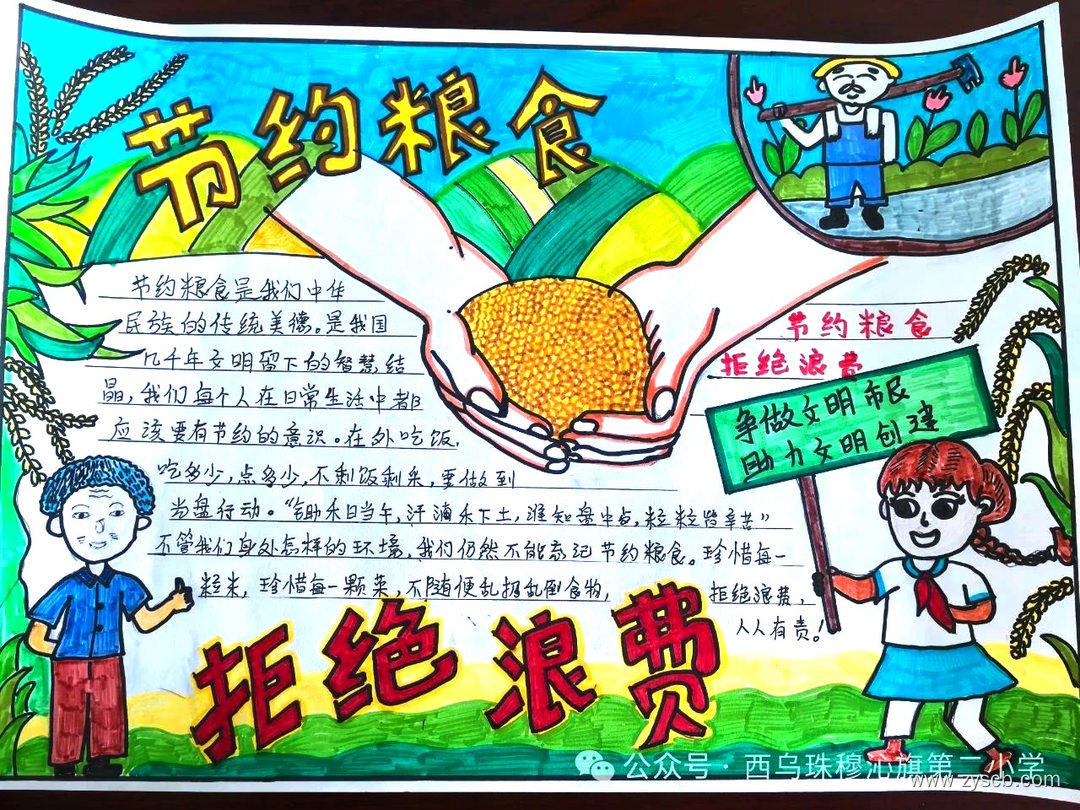 节约粮食
节约粮食是我们中华
民族的传统美德。是我国
几千年文明留下的智慧结
晶,我们每个人在日常生活中都
应该要有节约的意识。在外吃饭,
吃多少,点多少,不剩饭剩菜,要做到
光盘行动。“锄禾日当午,汗滴禾下土,谁知盘中餐,粒粒皆辛苦”
不管我们身处怎样的环境,我们仍然不能忘记节约粮食。珍惜每一
粒米,珍惜每一颗菜,不随便乱扔乱倒食物,
拒绝浪费,
人人有责!
节约粮食
拒绝浪费
争做文明市民
助力文明创建
拒绝浪费
公众号·西乌珠穆沁旗第二小学
www.zyscb.com